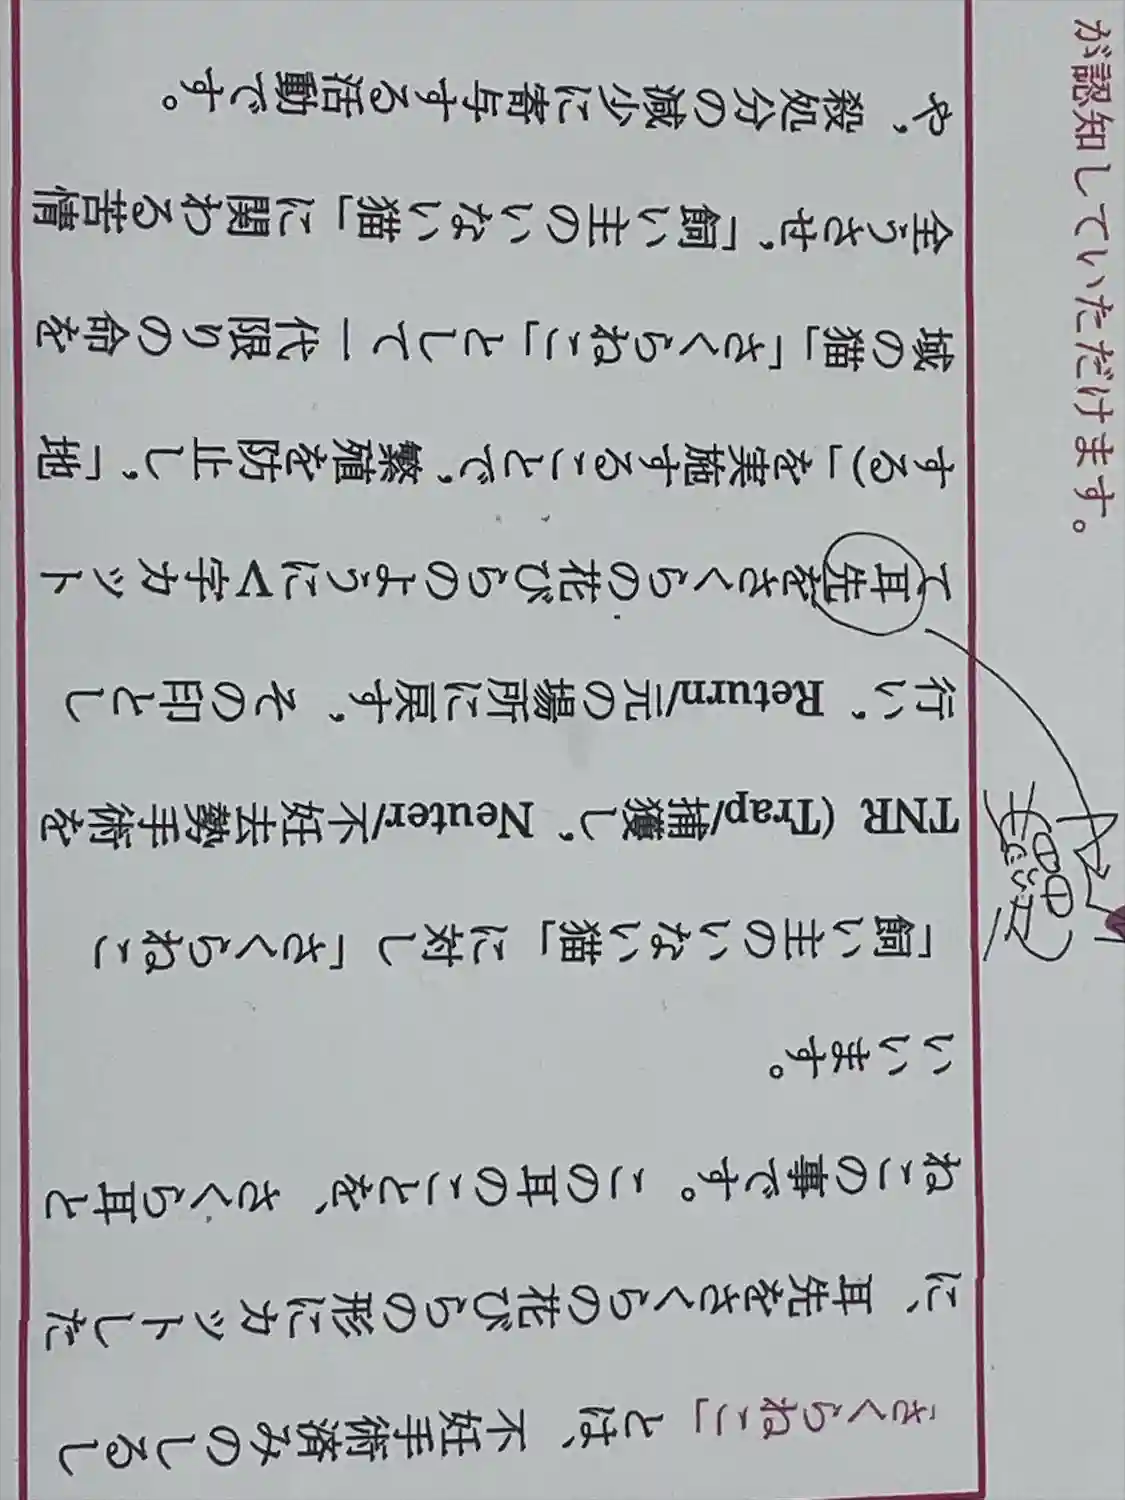 「さくらねこ」とは、不妊手術済みのしるし
に、耳先をさくらの花びらの形にカットした
ねこの事です。この耳のことを、さくら耳と
いいます。
「飼い主のいない猫」に対し「さくらねこ
TNR（Trap/捕獲し，Neuter/不妊去勢手術を
行い，Return/元の場所に戻す，その印とし
て耳先をさくらの花びらのようにV字カット
する）」を実施することで，繁殖を防止し，「地
域の猫」「さくらねこ」として一代限りの命を
全うさせ，「飼い主のいない猫」に関わる苦情
や，殺処分の減少に寄与する活動です。
が認知していただけます。